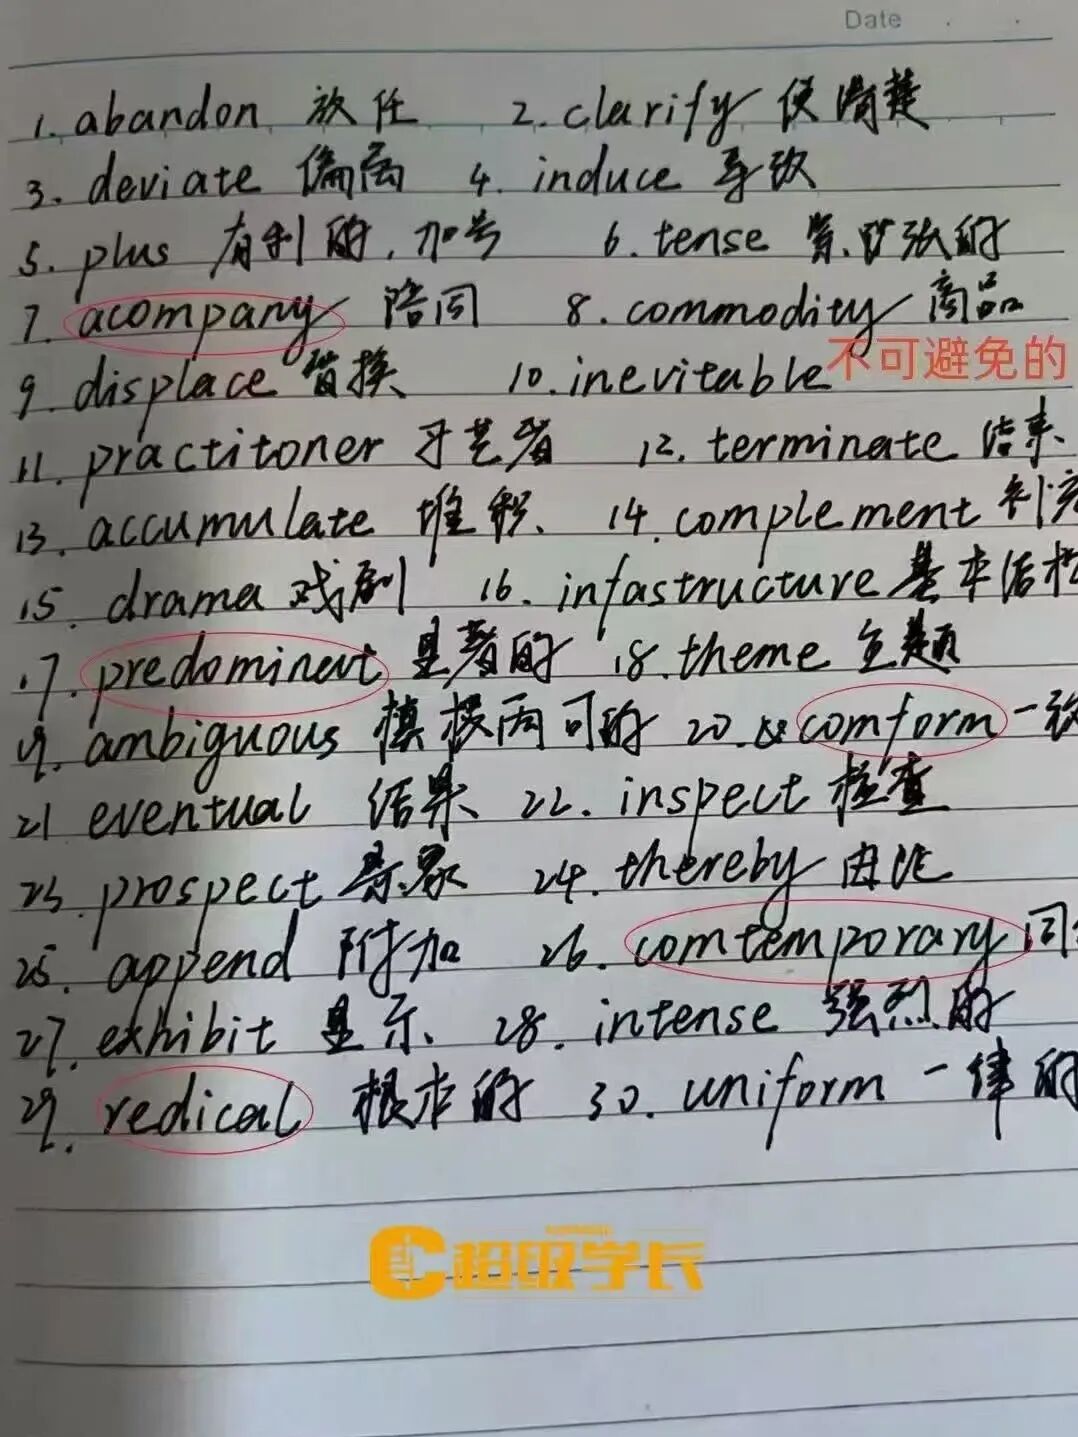 Date
1. abandon 放任 2. clarify 使清楚
3. deviate 偏离 4. induce 导致
5. plus 有利的,加号 6. tense 紧、扩张的
7. acompany 陪同 8. commodity 商品
9. displace 替换 10. inevitable 不可避免的
11. practitoner 牙艺者 12. terminate 结束
13. accumulate 堆积 14. complement 补充
15. drama 戏剧 16. infastructure 基本结构
17. predominent 显著的 18. theme 主题
19. ambiguous 模棱两可的 20. comform 一致
21 eventual 结果 22. inspect 检查
23. prospect 景象 24. thereby 由此
25. append 附加 26. comtemporary 同
27. exhibit 显示 28. intense 强烈的
29. redical 根本的 30. uniform 一律的
超级学长